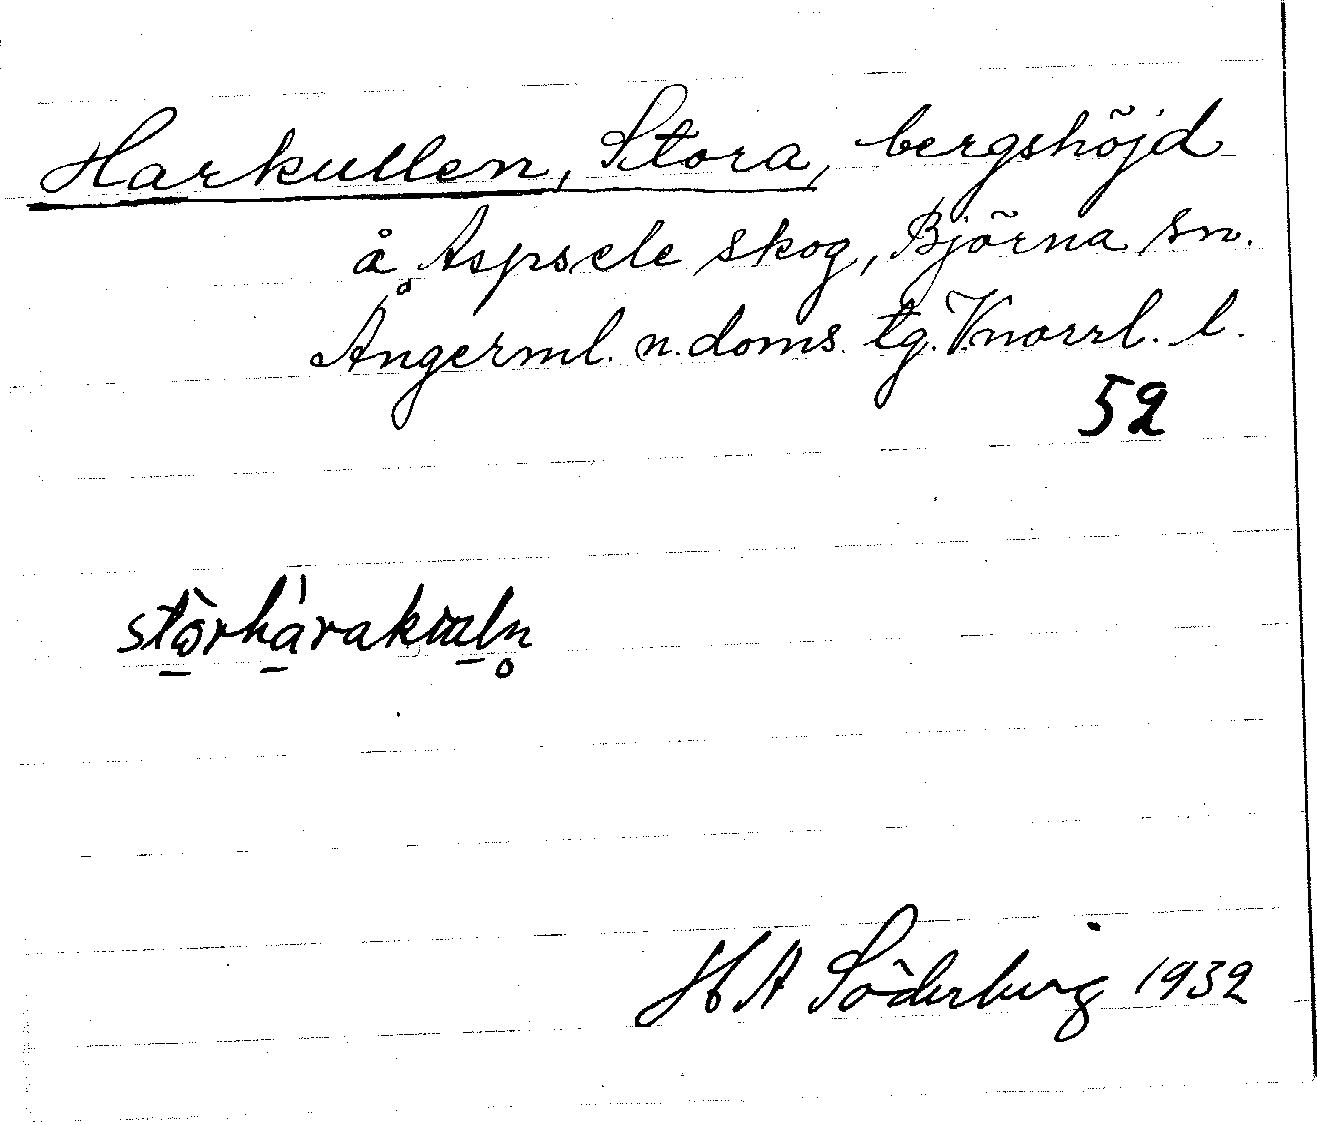 Harkullen, Stora, bergshöjd
å Aspsele skog, Björna sn.
Ångerml. n. doms. tg. Vnorrl. l.
52
H A Söderberg 1932